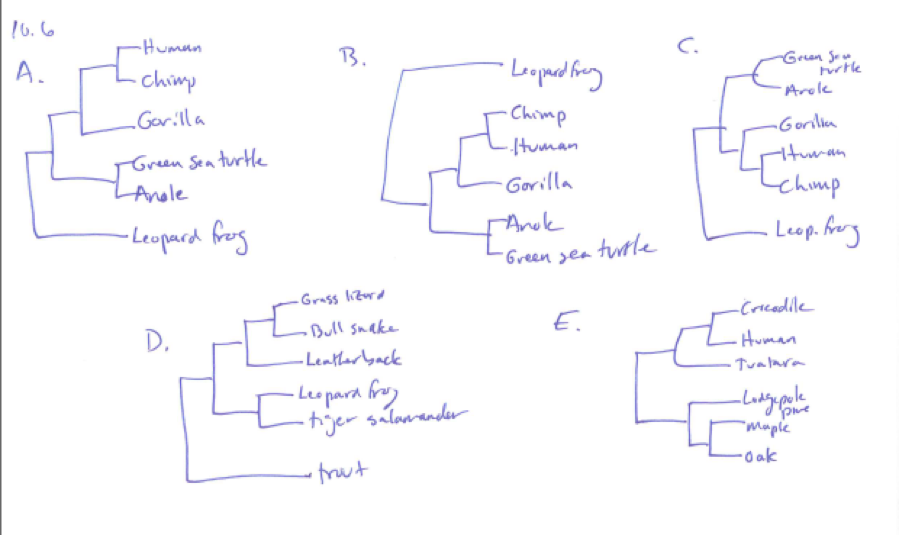 10.6
A.
Human
Chimp
Gorilla
Green sea turtle
Anole
Leopard frog
B.
Leopard frog
Chimp
Human
Gorilla
Anole
Green sea turtle
C.
Green sea
turtle
Anole
Gorilla
Human
Chimp
Leop. frog
D.
Grass lizard
Bull snake
Leatherback
Leopard frog
tiger salamander
trout
E.
Crocodile
Human
Tuatara
Lodgepole
pine
Maple
Oak